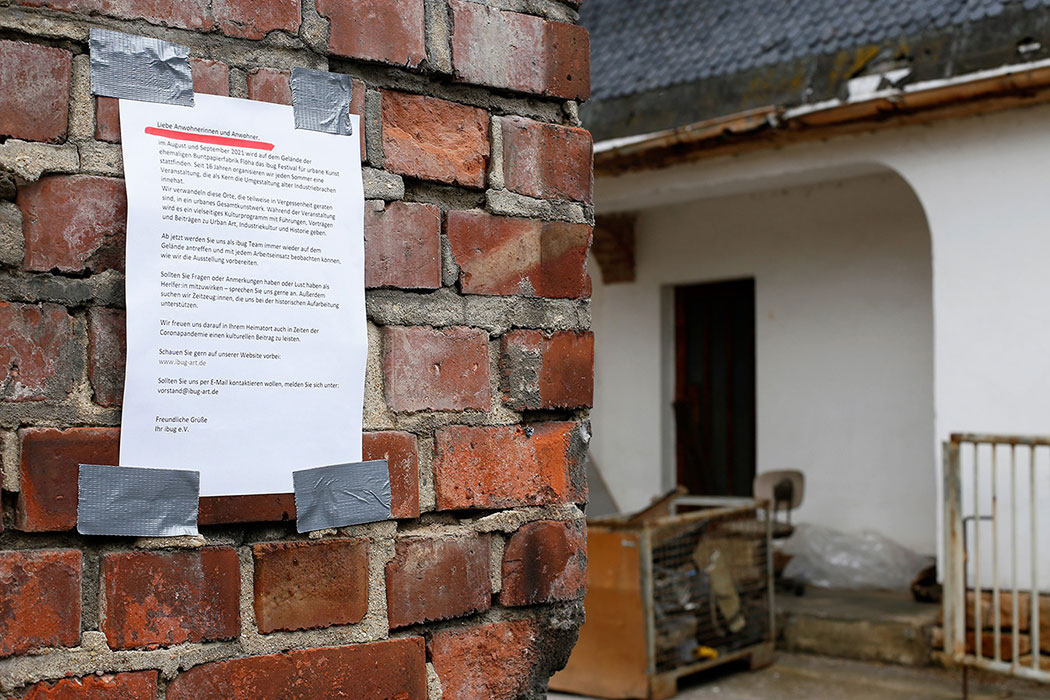 Liebe Anwohnerinnen und Anwohner,
im August und September 2021 wird auf dem Gelände der
ehemaligen Buntpapierfabrik Flöha das ibug Festival für urbane Kunst
stattfinden. Seit 16 Jahren organisieren wir jeden Sommer eine
Veranstaltung, die als Kern die Umgestaltung alter Industriebrachen
innehat.
Wir verwandeln diese Orte, die teilweise in Vergessenheit geraten
sind, in ein urbanes Gesamtkunstwerk. Während der Veranstaltung
wird es ein vielseitiges Kulturprogramm mit Führungen, Vorträgen
und Beiträgen zu Urban Art, Industriekultur und Historie geben.
Ab jetzt werden Sie uns als ibug Team immer wieder auf dem
Gelände antreffen und mit jedem Arbeitseinsatz beobachten können,
wie wir die Ausstellung vorbereiten.
Sollten Sie Fragen oder Anmerkungen haben oder Lust haben als
Herlfer:in mitzuwirken – sprechen Sie uns gerne an. Außerdem
suchen wir Zeitzeug:innen, die uns bei der historischen Aufarbeitung
unterstützen.
Wir freuen uns darauf in Ihrem Heimatort auch in Zeiten der
Coronapandemie einen kulturellen Beitrag zu leisten.
Schauen Sie gern auf unserer Website vorbei:
www.ibug-art.de
Sollten Sie uns per E-Mail kontaktieren wollen, melden Sie sich unter:
vorstand@ibug-art.de
Freundliche Grüße
Ihr ibug e.V.